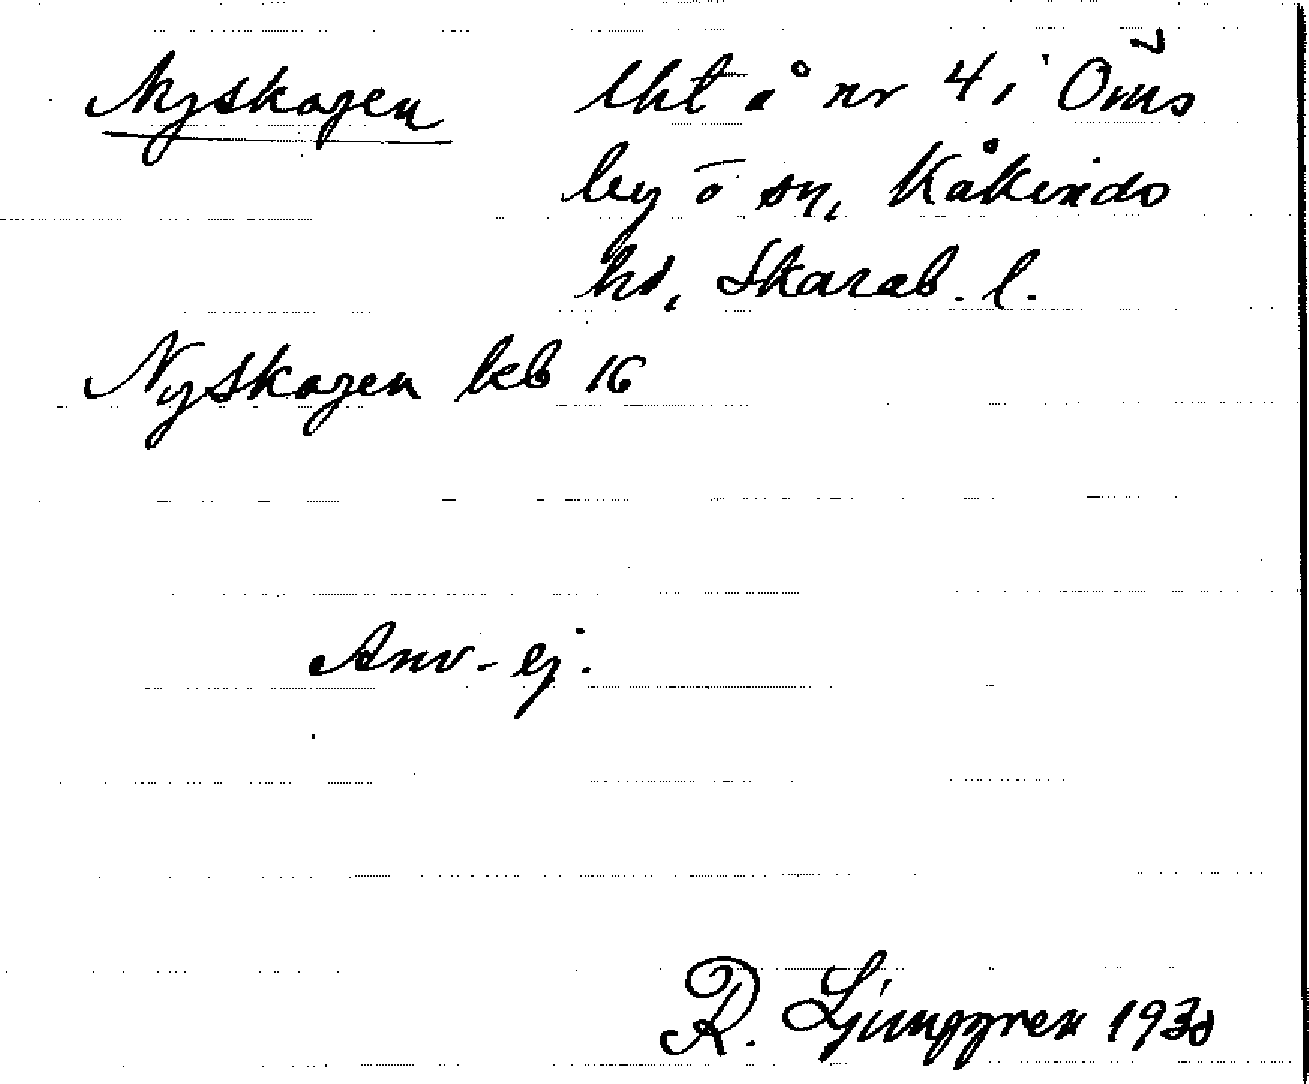 Nyskogen lht å nr 4 i Öms
by o sn, Kåkinds
hd, Skarab. l.
Nyskogen lkb 16
Anv. ej.
R. Ljunggren 1930